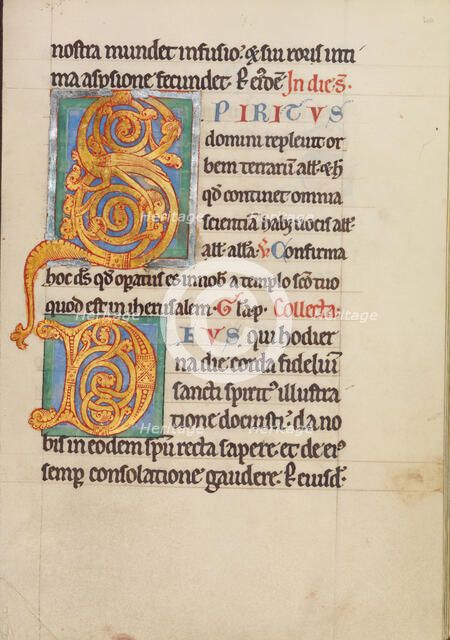 nostra mundet infusio· & sui roris inti
ma aspsione fecundet· P eūdē· In die S̄·
SPIRITVS
domini repleuit or
bem terrarū all'a· & h
qd continet omnia
scientiā habz uocis all'a·
all'a· all'a· V Confirma
hoc ds qd opatus es in nob a templo scō tuo
quod est in iherusalem· Gl'a p· Collecta·
DEVS qui hodier
na die corda fidelium
sancti spirit' illustra
tione docuisti· da no
bis in eodem spū recta sapere· et de ei'
semp consolatione gaudere· P eiusd·